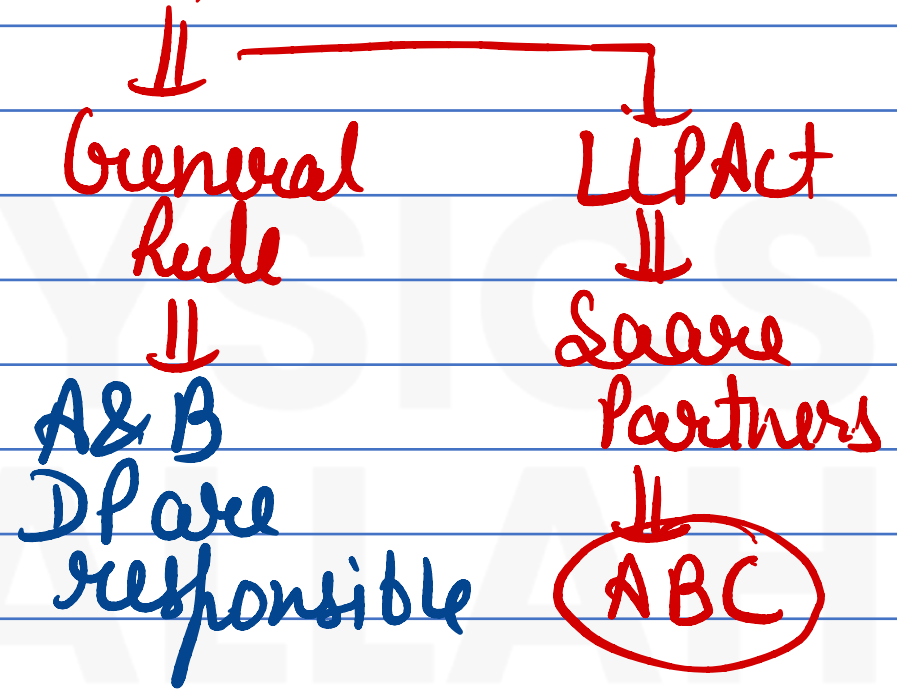 General
Rule
A & B
DP are
responsible
LLP Act
Saare
Partners
ABC
YSICS
ALLAH